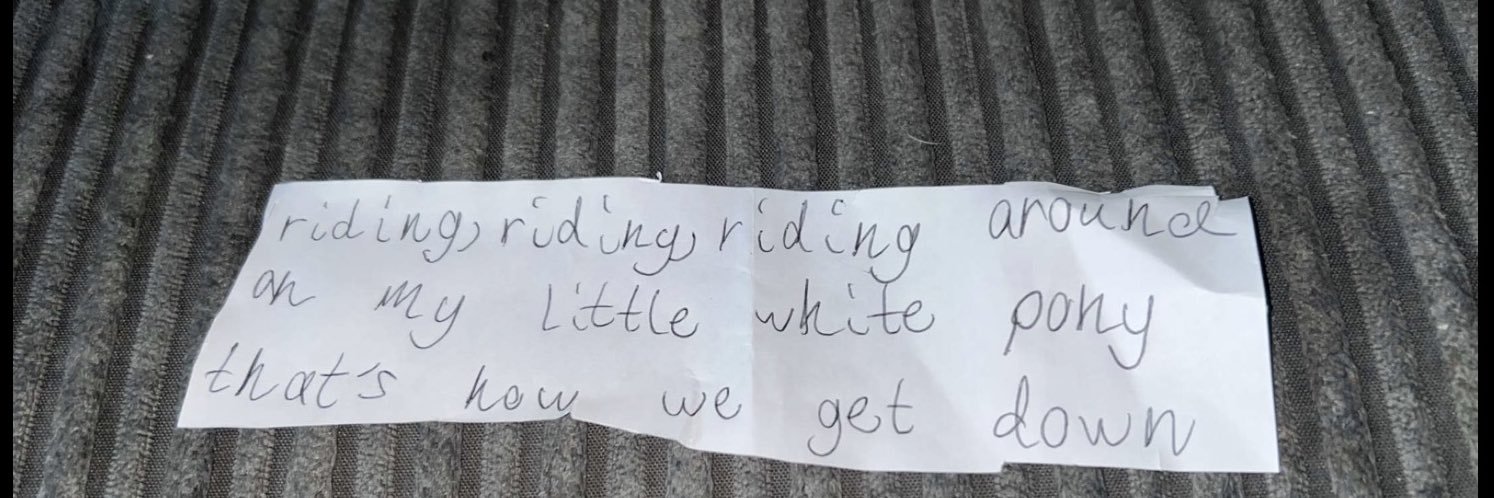 riding, riding, riding around
on my little white pony
that's how we get down